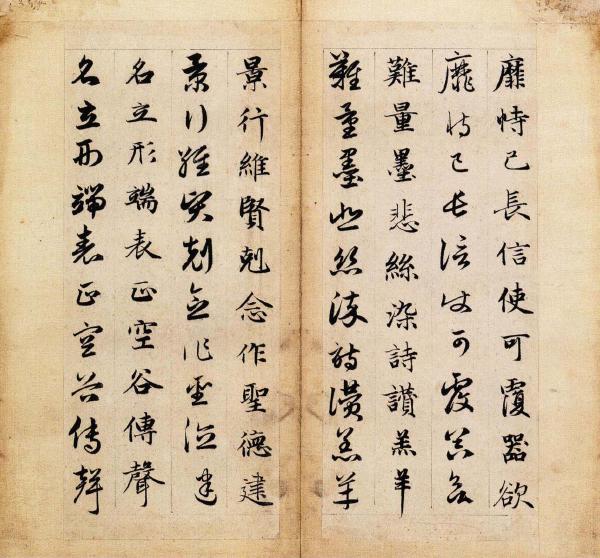 靡恃己長信使可覆器欲
靡恃己長信使可覆器欲
難量墨悲絲染詩讃羔羊
難量墨悲絲染詩讃羔羊
景行維賢剋念作聖德建
景行維賢剋念作聖德建
名立形端表正空谷傳聲
名立形端表正空谷傳聲